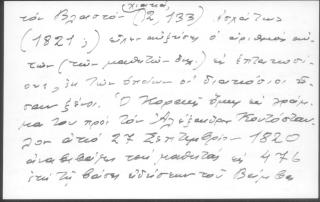 Χιακά,
τόν Βλαστόν (2, 133) Ἀρχάς τῶν
(1821 ;) εἶχεν αὐξήσει ὁ ἀριθμός αὐ-
τῶν (τῶν μαθητῶν δηλ.) εἰς ἑπτακοσί-
ους, ἐκ τῶν ὁποίων οἱ διακόσιοι ἦ-
σαν ξένοι. Ὁ Κοραῆς ὅμως εἰς γράμ-
μα του πρός τόν Ἀλέξανδρον Κοντόσταυ-
λον ἀπό 27 Σεπτεμβρίου 1820
ἀναβιβάζει τούς μαθητάς εἰς 476
ἐπί τῇ βάσει εἰδήσεων τοῦ Βάμβα